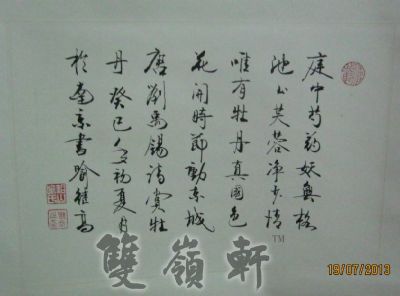 庭中芍藥妖無格
池上芙蓉淨少情
唯有牡丹真國色
花開時節動京城
唐劉禹錫詩賞牡
丹癸巳年初夏月
於南京書喻継高
雙嶺軒™
19/07/2013